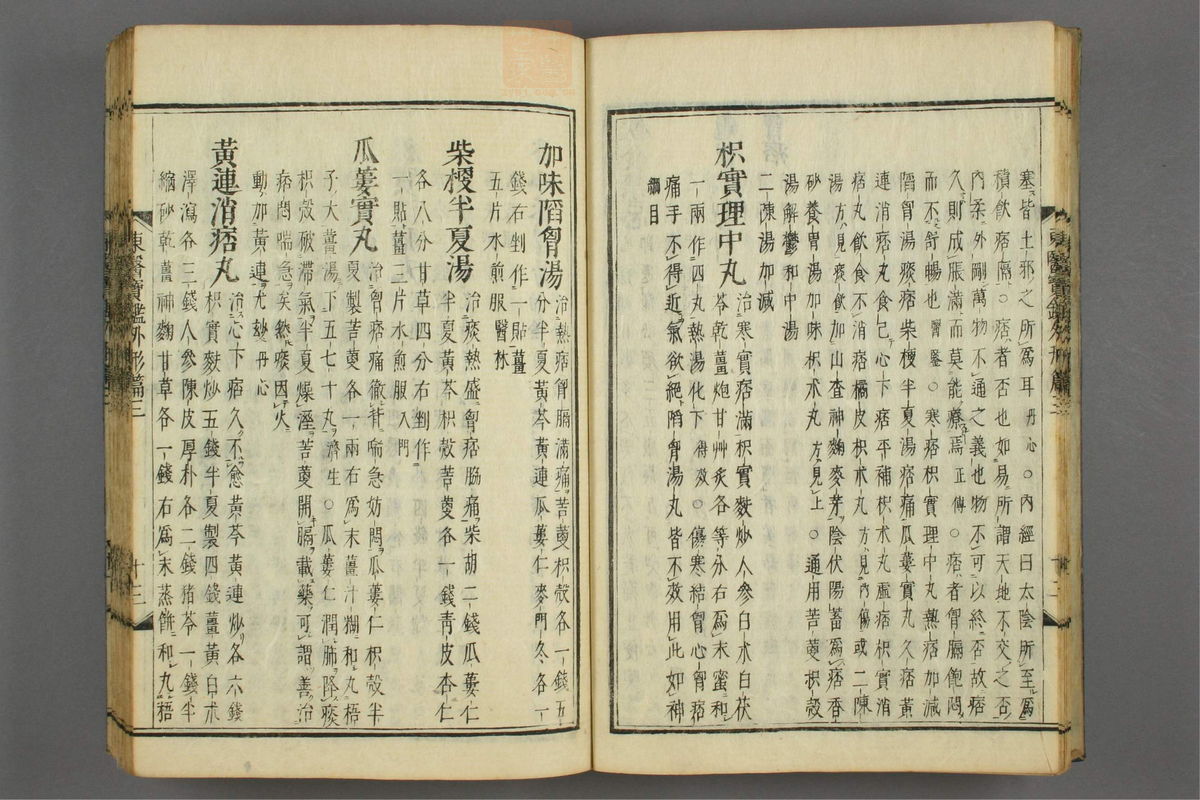 塞皆土邪之所爲耳丹心○內經曰太陰所至爲
積飮痞膈○痞者否也如易所謂天地不交之否
內柔外剛萬物不通之義也物不可以終否故痞
久則成脹滿而莫能療焉正傳○痞者胷膈飽悶
而不舒暢也醫鑒○寒痞枳實理中丸熱痞加減
陷胷湯痰痞柴梗半夏湯痞痛瓜蔞實丸久痞黃
連消痞丸食已心下痞平補枳朮丸虛痞枳實消
痞丸飮食不消痞橘皮枳朮丸方見內傷或二陳
湯方見痰飮加山査神麴麥芽陰伏陽蓄爲痞香
砂養胃湯加味枳朮丸方見上○通用苦蔞枳殼
湯解鬱和中湯
二陳湯加減
枳實理中丸 治寒實痞滿枳實麩炒人參白朮白茯
苓乾薑炮甘艸炙各等分右爲末蜜和
一兩作四丸熱湯化下得效○傷寒結胷心胷痞
痛手不得近氣欲絕陷胷湯丸皆不效用此如神
綱目
加味陷胷湯 治熱痞胷膈滿痛苦蔞枳殼各一錢五
分半夏黃芩黃連瓜蔞仁麥門冬各一
錢右剉作一貼薑
五片水煎服醫林
柴梗半夏湯 治痰熱盛胷痞脇痛柴胡二錢瓜蔞仁
半夏黃芩枳殼苦蔞各一錢靑皮杏仁
各八分甘草四分右剉作
一貼薑三片水煎服入門
瓜蔞實丸 治胷痞痛徹背喘急妨悶瓜蔞仁枳殼半
夏製苦蔞各一兩右爲末薑汁糊和丸梧
子大薑湯下五七十丸濟生○瓜蔞仁潤肺降痰
枳殼破滯氣半夏燥溼苦蔞開膈載藥可謂善治
痞悶喘急矣然痰因火
動加黃連尤妙丹心
黃連消痞丸 治心下痞久不愈黃芩黃連炒各六錢
枳實麩炒五錢半夏製四錢薑黃白朮
澤瀉各三錢人參陳皮厚朴各二錢猪苓一錢半
縮砂乾薑神麴甘草各一錢右爲末蒸餠和丸梧
東醫寶鑑外形篇三
十三